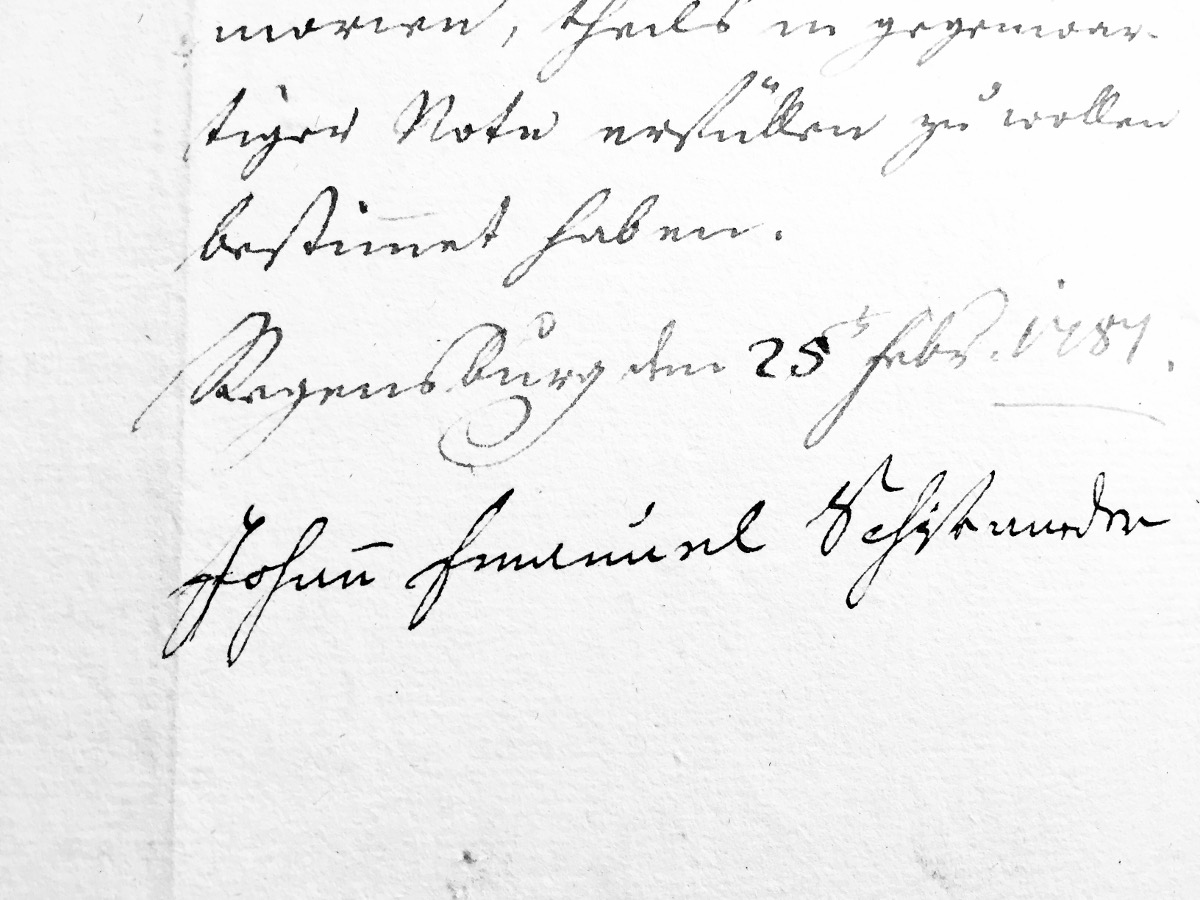 morien, theils in gegenwär-
tiger Note erfüllen zu wollen
bestim̅et haben.
Regensburg den 25t Febr. 1787.
Johan̅ Emanuel Schikaneder